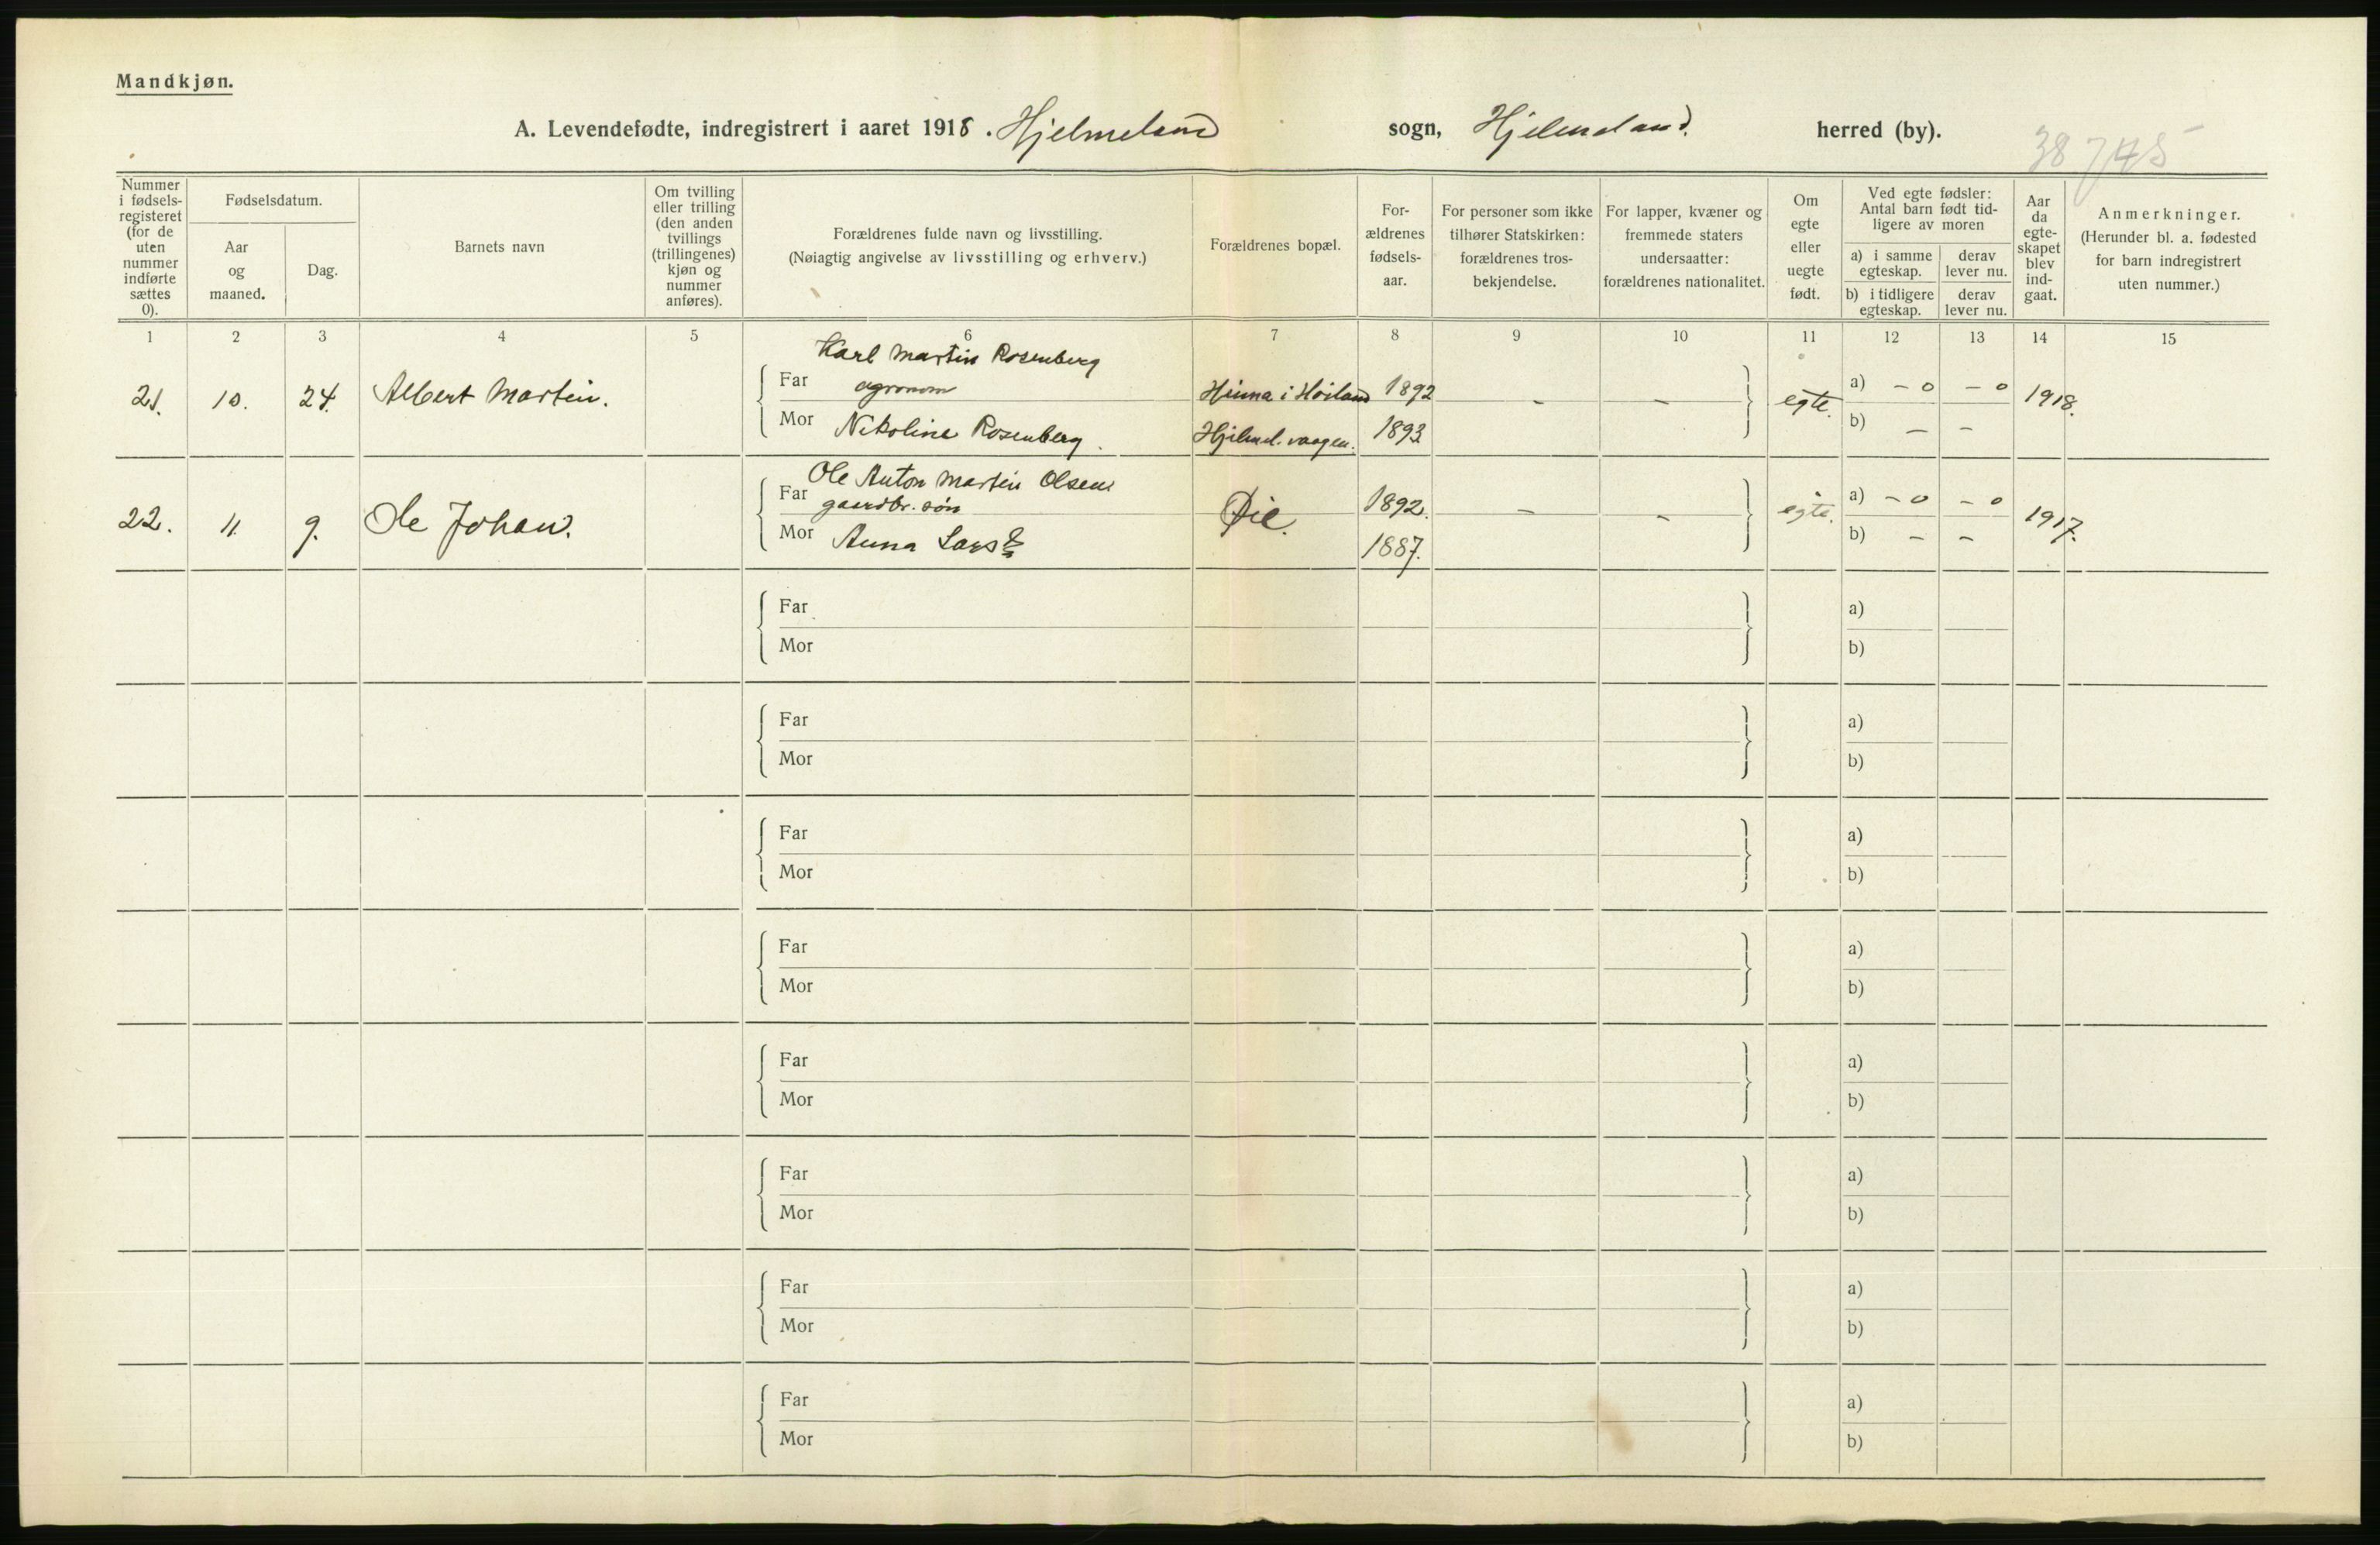 Mandkjøn.
A. Levendefødte, indregistrert i aaret 1918. Hjelmeland sogn, Hjelmeland. herred (by).
38 745
Nummer i fødsels-registeret (for de uten nummer indførte sættes 0).
Fødselsdatum.
Aar og maaned.
Dag.
Barnets navn
Om tvilling eller trilling (den anden tvillings (trillingenes) kjøn og nummer anføres).
Forældrenes fulde navn og livsstilling.
(Nøiagtig angivelse av livsstilling og erhverv.)
Forældrenes bopæl.
For-ældrenes fødsels-aar.
For personer som ikke tilhører Statskirken: forældrenes tros-bekjendelse.
For lapper, kvæner og fremmede staters undersaatter: forældrenes nationalitet.
Om egte eller uegte født.
Ved egte fødsler: Antal barn født tid-ligere av moren
a) i samme egteskap.
derav lever nu.
b) i tidligere egteskap.
derav lever nu.
Aar da egte-skapet blev ind-gaat.
Anmerkninger.
(Herunder bl. a. fødested for barn indregistrert uten nummer.)
1 2 3 4 5 6 7 8 9 10 11 12 13 14 15
Karl Martin Rosenberg
21. 10. 24. Albert Martin. Far agronom Hinna i Høiland 1892 - - egte. a) - 0 - 0 1918.
Mor Nikoline Rosenberg. Hjelmel. vaagen. 1893 b) - -
Ole Anton Martin Olsen
22. 11. 9. Ole Johan. Far gaardbr. søn Øie. 1892. - - egte. a) - 0 - 0 1917.
Mor Anna Larsd. 1887. b) - -
Far a)
Mor b)
Far a)
Mor b)
Far a)
Mor b)
Far a)
Mor b)
Far a)
Mor b)
Far a)
Mor b)
Far a)
Mor b)
Far a)
Mor b)